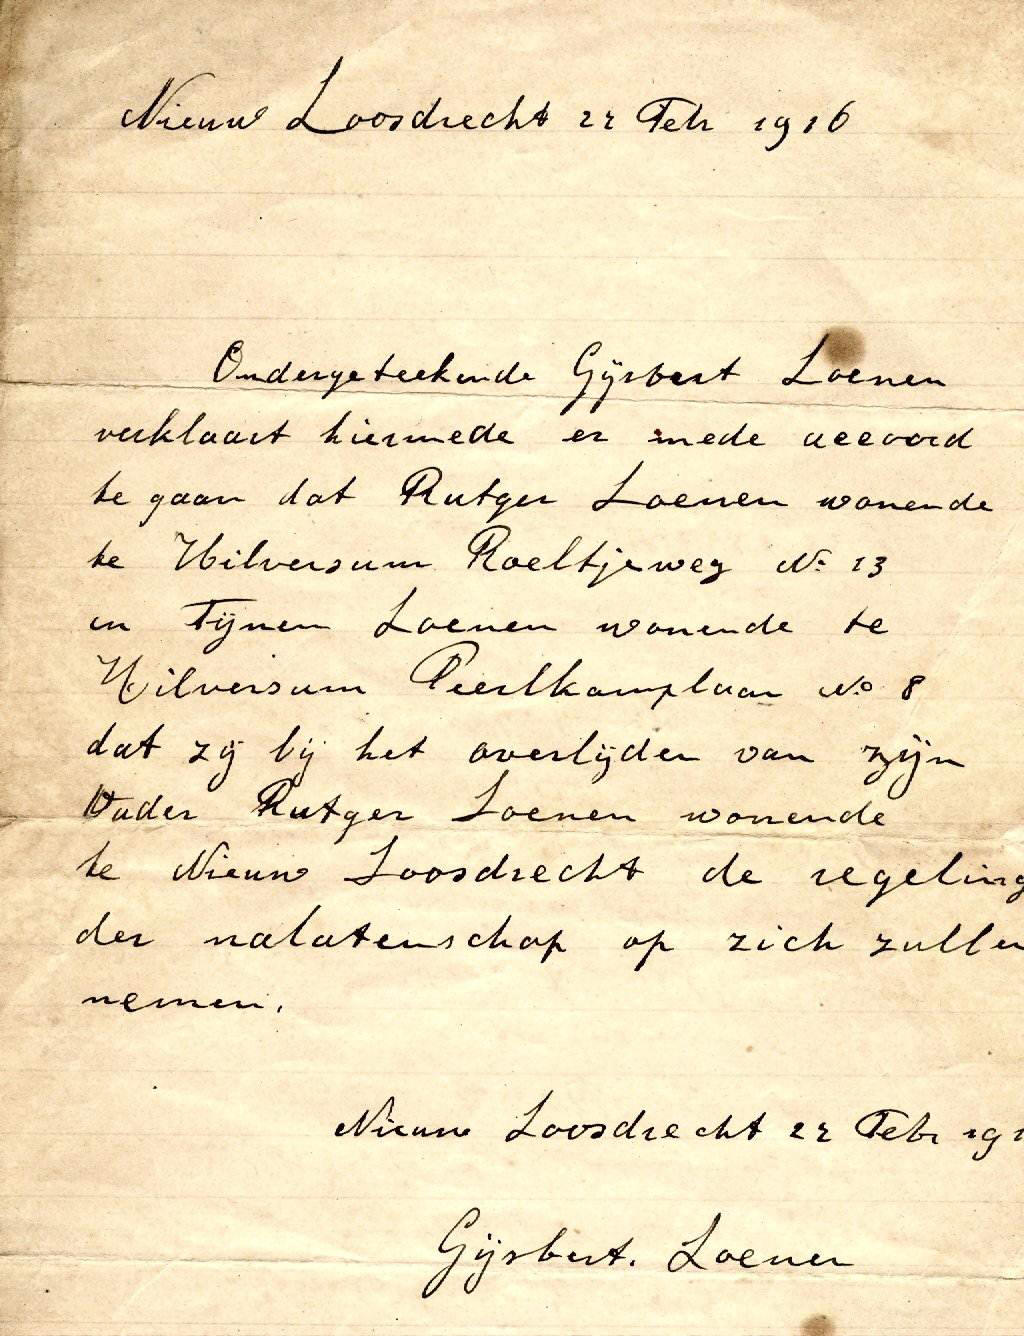 Nieuw Loosdrecht 22 Febr 1916
Ondergeteekende Gijsbert Loenen
verklaart hiermede er mede accoord
te gaan dat Rutger Loenen wonende
te Hilversum Roeltjeweg No 13
en Tijnen Loenen wonende te
Hilversum Peerlkamplaan No 8
dat zij bij het overlijden van zijn
Vader Rutger Loenen wonende
te Nieuw Loosdrecht de regeling
der nalatenschap op zich zullen
nemen.
Nieuw Loosdrecht 22 Febr 191
Gijsbert. Loenen